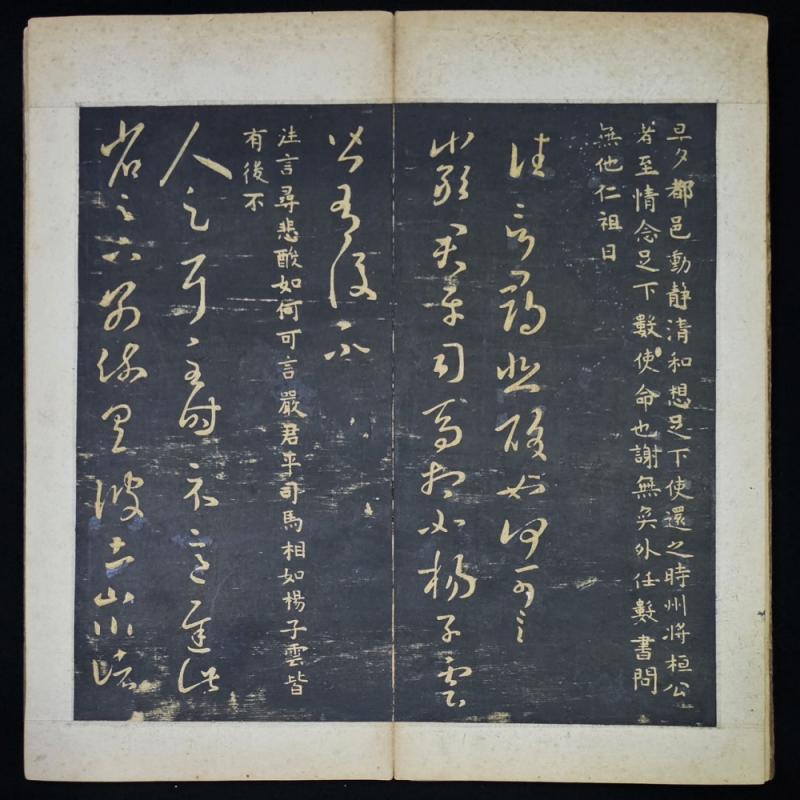 旦夕都邑動靜清和想足下使還之時州將桓公
者至情念足下數使命也謝無奕外任數書問
無他仁祖日
往言尋悲酸如何可言
嚴君平司馬相如楊子雲
皆有後不
注言尋悲酸如何可言嚴君平司馬相如楊子雲皆
有後不
人足耳至時示意遲此
省足下別疏具彼土山川諸